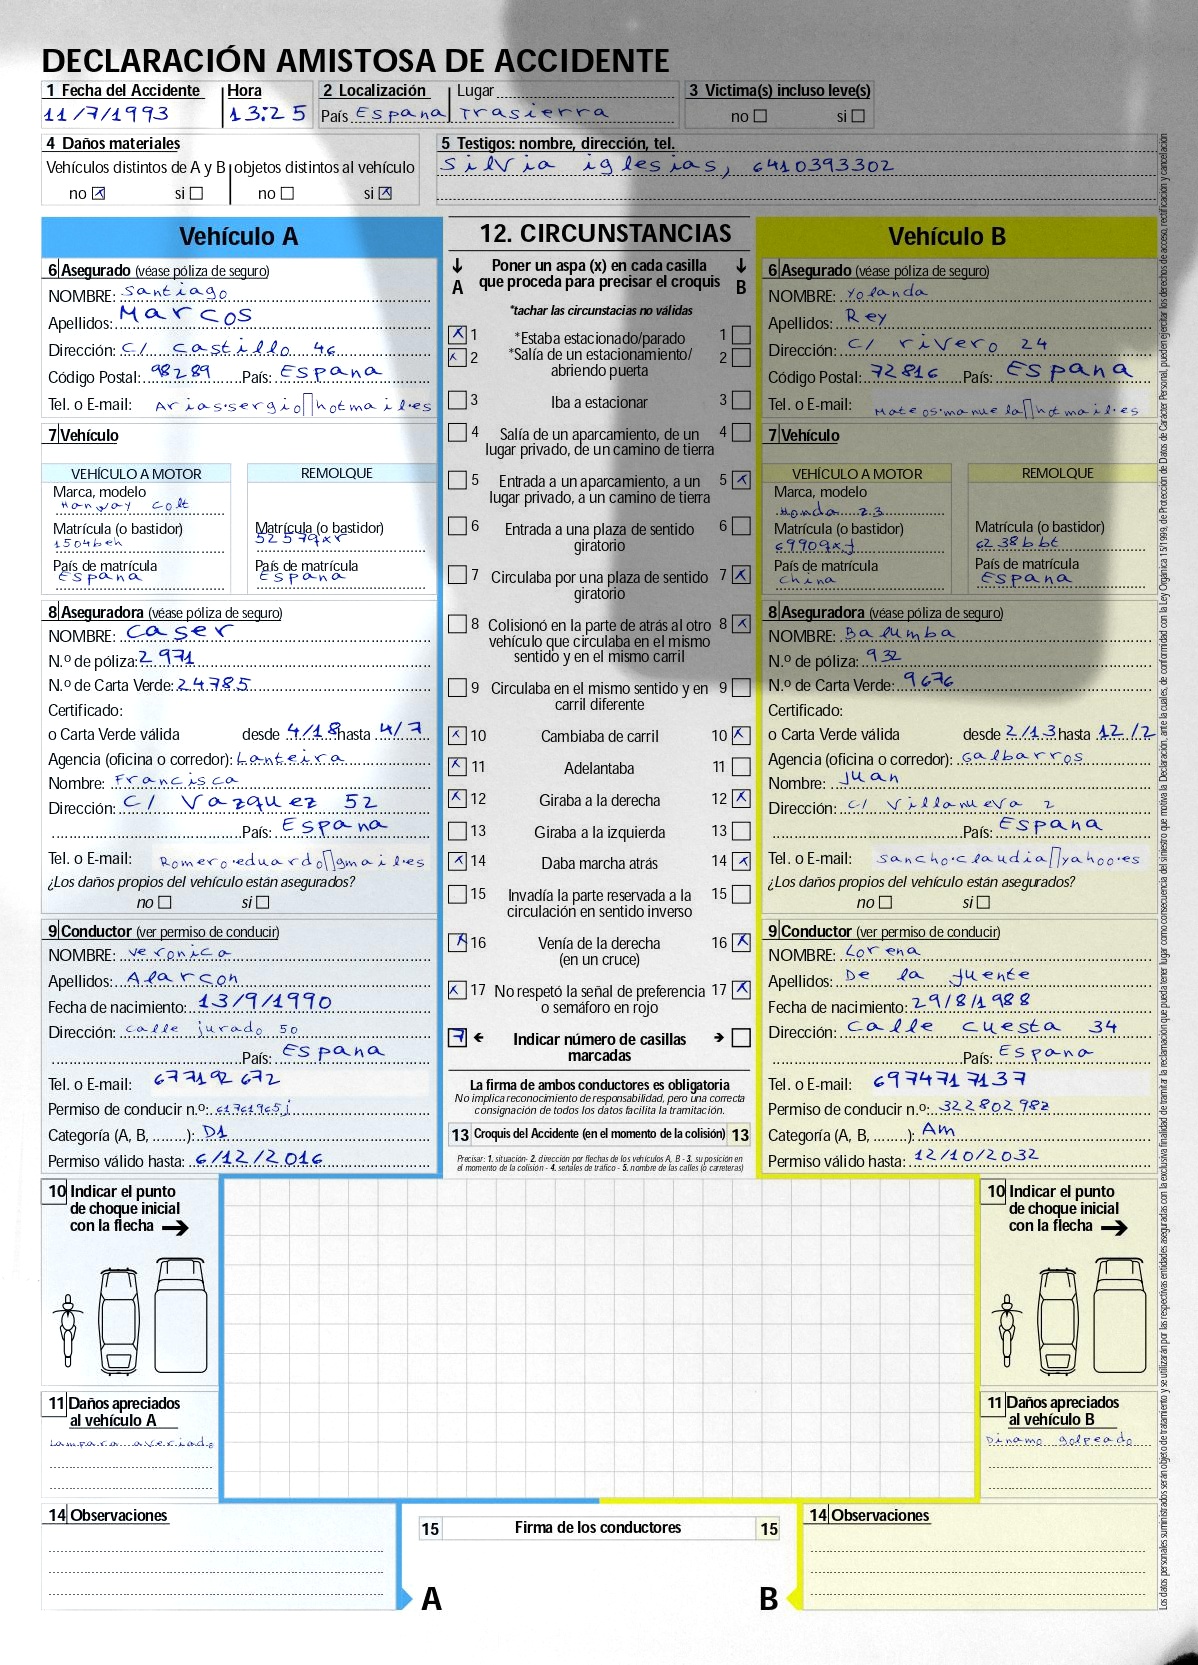 DECLARACIÓN AMISTOSA DE ACCIDENTE
1 Fecha del Accidente Hora 2 Localización Lugar 3 Victima(s) incluso leve(s)
11/7/1993 13:25 País Espana Trasierra no si
4 Daños materiales
Vehículos distintos de A y B objetos distintos al vehículo
no x si no si x
5 Testigos: nombre, dirección, tel.
Silvia iglesias, 6410393302
Vehículo A
6 Asegurado (véase póliza de seguro)
NOMBRE: Santiago
Apellidos: Marcos
Dirección: C/ castillo 46
Código Postal: 98289 País: Espana
Tel. o E-mail: Arias.sergio▯hotmail.es
7 Vehículo
VEHÍCULO A MOTOR REMOLQUE
Marca, modelo
Hanway colt
Matrícula (o bastidor) Matrícula (o bastidor)
1504beh 5257qxr
País de matrícula País de matrícula
Espana Espana
8 Aseguradora (véase póliza de seguro)
NOMBRE: caser
N.º de póliza: 2971
N.º de Carta Verde: 24785
Certificado:
o Carta Verde válida desde 4/18 hasta 4/7
Agencia (oficina o corredor): Lanteira
Nombre: Francisca
Dirección: C/ Vazquez 52
País: Espana
Tel. o E-mail: Romero.eduardo▯gmail.es
¿Los daños propios del vehículo están asegurados?
no si
9 Conductor (ver permiso de conducir)
NOMBRE: veronica
Apellidos: Alarcon
Fecha de nacimiento: 13/9/1990
Dirección: calle jurado 50
País: Espana
Tel. o E-mail: 677192672
Permiso de conducir n.º: 61761965j
Categoría (A, B, ........): D1
Permiso válido hasta: 6/12/2016
12. CIRCUNSTANCIAS
A Poner un aspa (x) en cada casilla que proceda para precisar el croquis B
*tachar las circunstacias no válidas
x 1 *Estaba estacionado/parado 1
x 2 *Salía de un estacionamiento/ 2
abriendo puerta
3 Iba a estacionar 3
4 Salía de un aparcamiento, de un 4
lugar privado, de un camino de tierra
5 Entrada a un aparcamiento, a un 5 x
lugar privado, a un camino de tierra
6 Entrada a una plaza de sentido 6
giratorio
7 Circulaba por una plaza de sentido 7 x
giratorio
8 Colisionó en la parte de atrás al otro 8 x
vehículo que circulaba en el mismo
sentido y en el mismo carril
9 Circulaba en el mismo sentido y en 9
carril diferente
x 10 Cambiaba de carril 10 x
x 11 Adelantaba 11
x 12 Giraba a la derecha 12 x
13 Giraba a la izquierda 13
x 14 Daba marcha atrás 14 x
15 Invadía la parte reservada a la 15
circulación en sentido inverso
x 16 Venía de la derecha 16 x
(en un cruce)
x 17 No respetó la señal de preferencia 17 x
o semáforo en rojo
7 Indicar número de casillas
marcadas
La firma de ambos conductores es obligatoria
No implica reconocimiento de responsabilidad, pero una correcta
consignación de todos los datos facilita la tramitación.
13 Croquis del Accidente (en el momento de la colisión) 13
Precisar: 1. situación- 2. dirección por flechas de los vehículos A, B - 3. su posición en
el momento de la colisión - 4. señales de tráfico - 5. nombre de las calles (o carreteras)
Vehículo B
6 Asegurado (véase póliza de seguro)
NOMBRE: Yolanda
Apellidos: Rey
Dirección: C/ rivero 24
Código Postal: 72816 País: Espana
Tel. o E-mail: Mateos.manuela▯hotmail.es
7 Vehículo
VEHÍCULO A MOTOR REMOLQUE
Marca, modelo
Honda z3
Matrícula (o bastidor) Matrícula (o bastidor)
6990qxf 6238bbt
País de matrícula País de matrícula
China Espana
8 Aseguradora (véase póliza de seguro)
NOMBRE: Balumba
N.º de póliza: 932
N.º de Carta Verde: 9676
Certificado:
o Carta Verde válida desde 2/13 hasta 12/2
Agencia (oficina o corredor): Galbarros
Nombre: Juan
Dirección: C/ Villanueva 2
País: Espana
Tel. o E-mail: Sancho.claudia▯yahoo.es
¿Los daños propios del vehículo están asegurados?
no si
9 Conductor (ver permiso de conducir)
NOMBRE: Lorena
Apellidos: De la fuente
Fecha de nacimiento: 29/8/1988
Dirección: Calle cuesta 34
País: Espana
Tel. o E-mail: 6974717137
Permiso de conducir n.º: 32280298z
Categoría (A, B, ........): Am
Permiso válido hasta: 12/10/2032
10 Indicar el punto
de choque inicial
con la flecha
11 Daños apreciados
al vehículo A
Lampara averiado
14 Observaciones
10 Indicar el punto
de choque inicial
con la flecha
11 Daños apreciados
al vehículo B
Dinamo golpeado
14 Observaciones
15 Firma de los conductores 15
A B
Los datos personales suministrados serán objeto de tratamiento y se utilizarán por las respectivas entidades aseguradas con la exclusiva finalidad de tramitar la reclamación que pueda tener lugar como consecuencia del siniestro que motiva la Declaración, ante la cuales, de conformidad con la Ley Orgánica 15/1999, de Protección de Datos de Carácter Personal, pueden ejercitar los derechos de acceso, rectificación y cancelación